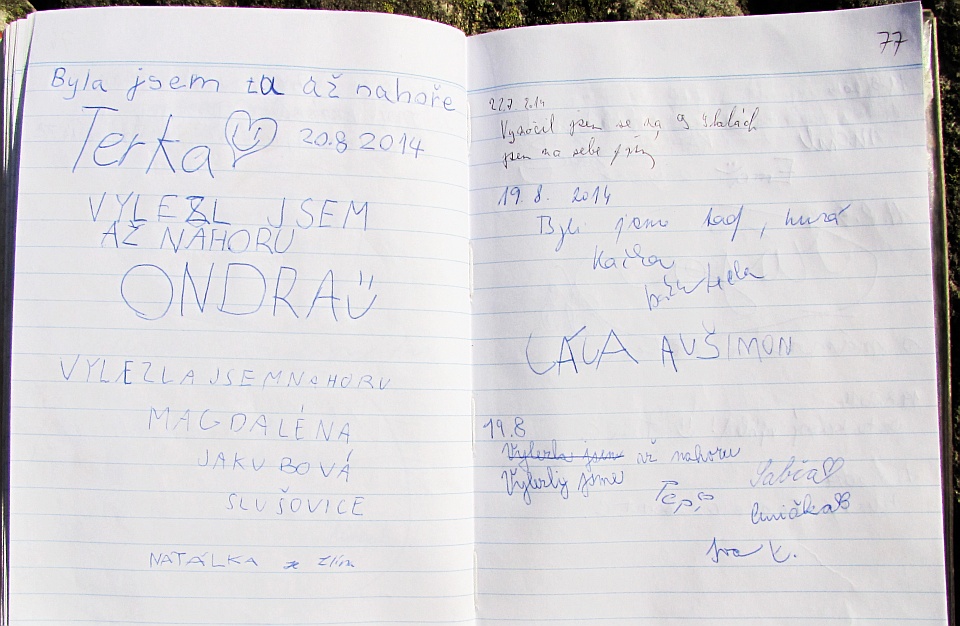 Byla jsem tu až nahoře
Terka
20.8 2014
VYLEZL JSEM
AŽ NAHORU
ONDRA
VYLEZLA JSEM NaHORU
MAGDALÉNA
JAKUBOVÁ
SLUŠOVICE
NATÁLKA z Zlín
77
22.7. 2014
Vysočil jsem se na 9 skalách
jsem na sebe
19. 8. 2014
Byli jsme tady, hurá
Kačka
LÁĎA AVŠIMON
19.8
Vylezla jsem až nahoru
Vylezly jsme
Pepi
Sabča
Iva K.